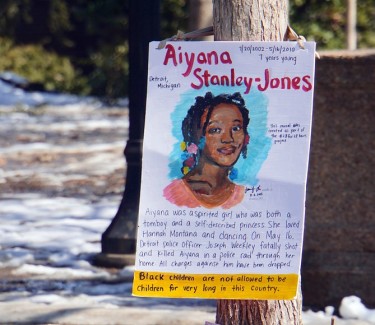 Aiyana
Stanley-Jones
7/20/2002 - 5/16/2010
7 years young
Detroit,
Michigan
created as part of
Aiyana was a spirited girl who was both a
tomboy and a self-described princess. She loved
Hannah Montana and dancing. On May 16
Detroit police officer Joseph Weekley fatally shot
and killed Aiyana in a police raid through her
home. All charges against him have been dropped.
Black children are not allowed to be
children for very long in this country.